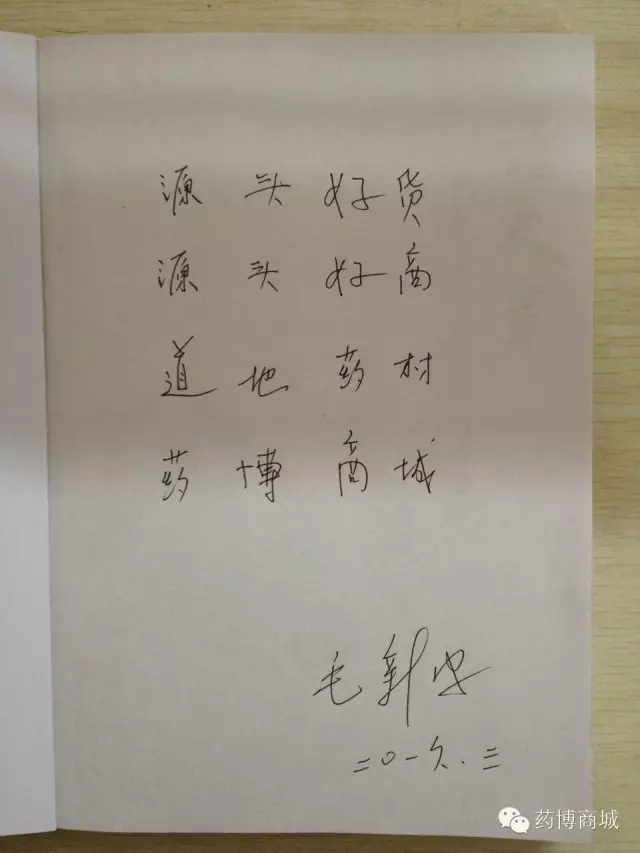 源头好货
源头好商
道地药材
药博商城
毛
二〇一六.三
药博商城